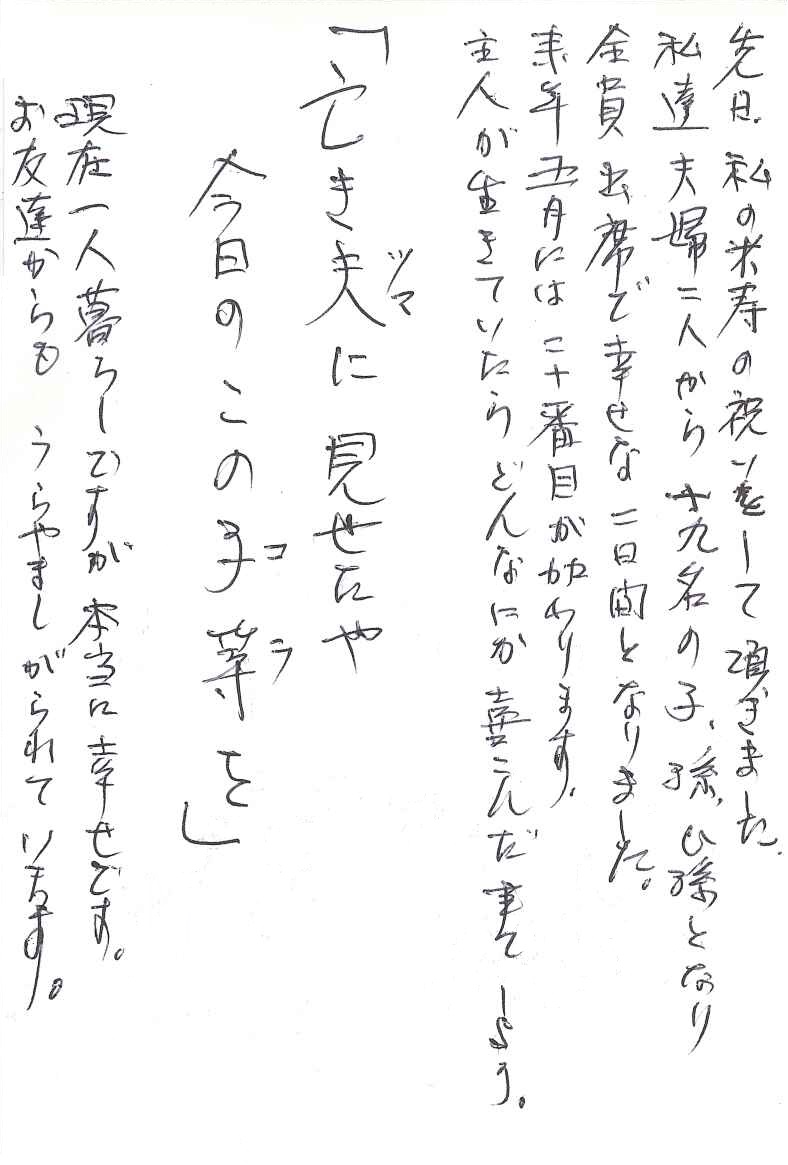 先日、私の米寿の祝いをして頂きました。
私達夫婦二人から十九名の子、孫、ひ孫となり
全員出席で幸せな二日間となりました。
来年五月には二十番目が加わります。
主人が生きていたらどんなにか喜こんだ事でしょう。
「亡き夫に見せたや
ツマ
今日のこの子等を」
コ ラ
現在一人暮らしですが本当に幸せです。
お友達からも うらやましがられています。